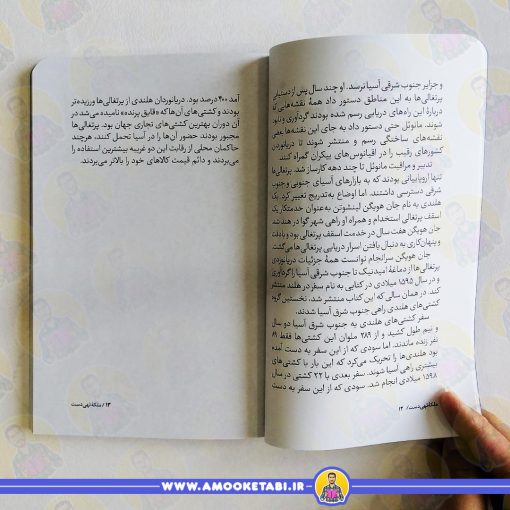 و جزایر جنوب شرقی آسیا نرسند. او چند سال پس از دستیابی
پرتغالی‌ها به این مناطق دستور داد همهٔ نقشه‌هایی که
دربارهٔ این راه‌های دریایی رسم شده بودند گردآوری و نابود
شوند. مانوئل حتی دستور داد به جای این نقشه‌ها بعضی
نقشه‌های ساختگی رسم و منتشر شوند تا دریانوردان
کشورهای رقیب را در اقیانوس‌های بیکران گمراه کنند.
تدبیر و مراقبت مانوئل تا چند دهه کارساز شد. پرتغالی‌ها
تنها اروپاییانی بودند که به بازارهای آسیای جنوبی و جنوب
شرقی دسترسی داشتند. اما اوضاع به‌تدریج تغییر کرد. یک
هلندی به نام جان هویگن لینشوتن به‌عنوان خدمتکار یک
اسقف پرتغالی استخدام و همراه او راهی شهر گوا در هند شد.
جان هویگن هفت سال در خدمت اسقف پرتغالی بود و با دقت
و پنهان‌کاری به دنبال یافتن اسرار دریایی پرتغالی‌ها می‌گشت.
جان هویگن سرانجام توانست همهٔ جزئیات دریانوردی
پرتغالی‌ها از دماغهٔ امیدنیک تا جنوب شرقی آسیا را گردآوری
کند. در سال ۱۵۹۵ میلادی در کتابی به نام سفر در هلند منتشر
کند. در همان سالی که این کتاب منتشر شد، نخستین گروه
کشتی‌های هلندی راهی جنوب شرق آسیا شدند.
سفر کشتی‌های هلندی به جنوب شرق آسیا دو سال
و نیم طول کشید و از ۲۸۹ ملوان این کشتی‌ها فقط ۸۹
نفر زنده ماندند. اما سودی که از این سفر به دست آمده
بود هلندی‌ها را تحریک می‌کرد که این بار با کشتی‌های
بیشتری راهی آسیا شوند. سفر بعدی با ۲۲ کشتی در سال
۱۵۹۸ میلادی انجام شد. سودی که از این سفر به دست
ملکهٔ تهی‌دست / ۱۲
آمد ۴۰۰ درصد بود. دریانوردان هلندی از پرتغالی‌ها ورزیده‌تر
بودند و کشتی‌های آن‌ها که «قایق پرنده» نامیده می‌شد در
آن دوران بهترین کشتی‌های تجاری جهان بود. پرتغالی‌ها
مجبور بودند حضور آن‌ها را در آسیا تحمل کنند، هرچند
حاکمان محلی از رقابت این دو غریبه بیشترین استفاده را
می‌بردند و دائم قیمت کالاهای خود را بالاتر می‌بردند.
۱۳ / ملکهٔ تهی‌دست
WWW.AMOOKETABI.IR